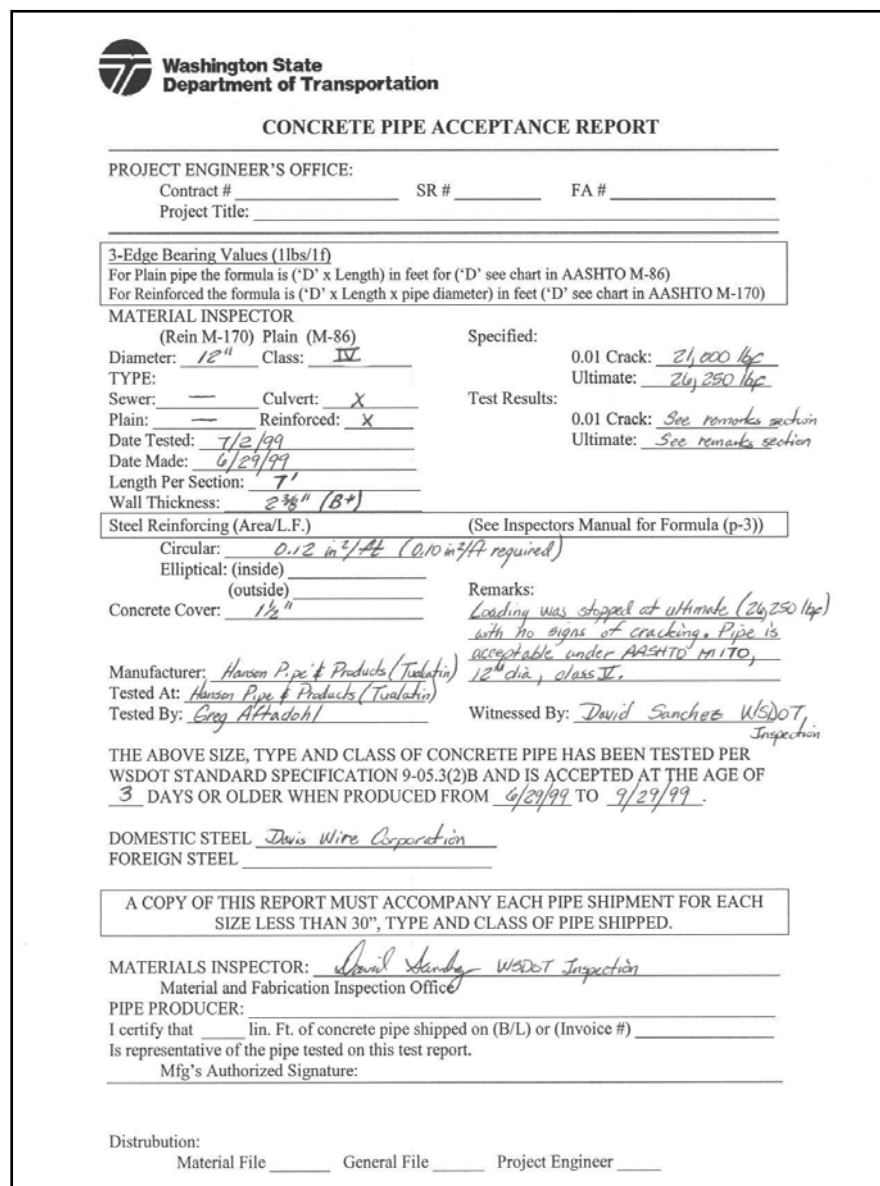 Washington State
Department of Transportation
CONCRETE PIPE ACCEPTANCE REPORT
PROJECT ENGINEER'S OFFICE:
Contract # SR # FA #
Project Title:
3-Edge Bearing Values (1lbs/1f)
For Plain pipe the formula is ('D' x Length) in feet for ('D' see chart in AASHTO M-86)
For Reinforced the formula is ('D' x Length x pipe diameter) in feet ('D' see chart in AASHTO M-170)
MATERIAL INSPECTOR
(Rein M-170) Plain (M-86) Specified:
Diameter: 12" Class: IV 0.01 Crack: 21,000 lbf
TYPE: Ultimate: 26,250 lbf
Sewer: — Culvert: X Test Results:
Plain: — Reinforced: X 0.01 Crack: See remarks section
Date Tested: 7/2/99 Ultimate: See remarks section
Date Made: 6/29/99
Length Per Section: 7'
Wall Thickness: 2 3/8" (B+)
Steel Reinforcing (Area/L.F.) (See Inspectors Manual for Formula (p-3))
Circular: 0.12 in²/ft (0.10 in²/ft required)
Elliptical: (inside)
(outside) Remarks:
Concrete Cover: 1 1/2" Loading was stopped at ultimate (26,250 lbf)
with no signs of cracking. Pipe is
acceptable under AASHTO M170,
Manufacturer: Hanson Pipe & Products (Tualatin) 12" dia, class IV.
Tested At: Hanson Pipe & Products (Tualatin)
Tested By: Greg Aftadohl Witnessed By: David Sanchez WSDOT,
Inspection
THE ABOVE SIZE, TYPE AND CLASS OF CONCRETE PIPE HAS BEEN TESTED PER
WSDOT STANDARD SPECIFICATION 9-05.3(2)B AND IS ACCEPTED AT THE AGE OF
3 DAYS OR OLDER WHEN PRODUCED FROM 6/29/99 TO 9/29/99.
DOMESTIC STEEL Davis Wire Corporation
FOREIGN STEEL
A COPY OF THIS REPORT MUST ACCOMPANY EACH PIPE SHIPMENT FOR EACH
SIZE LESS THAN 30", TYPE AND CLASS OF PIPE SHIPPED.
MATERIALS INSPECTOR: David Sanchez WSDOT Inspection
Material and Fabrication Inspection Office
PIPE PRODUCER:
I certify that lin. Ft. of concrete pipe shipped on (B/L) or (Invoice #)
Is representative of the pipe tested on this test report.
Mfg's Authorized Signature:
Distrubution:
Material File General File Project Engineer